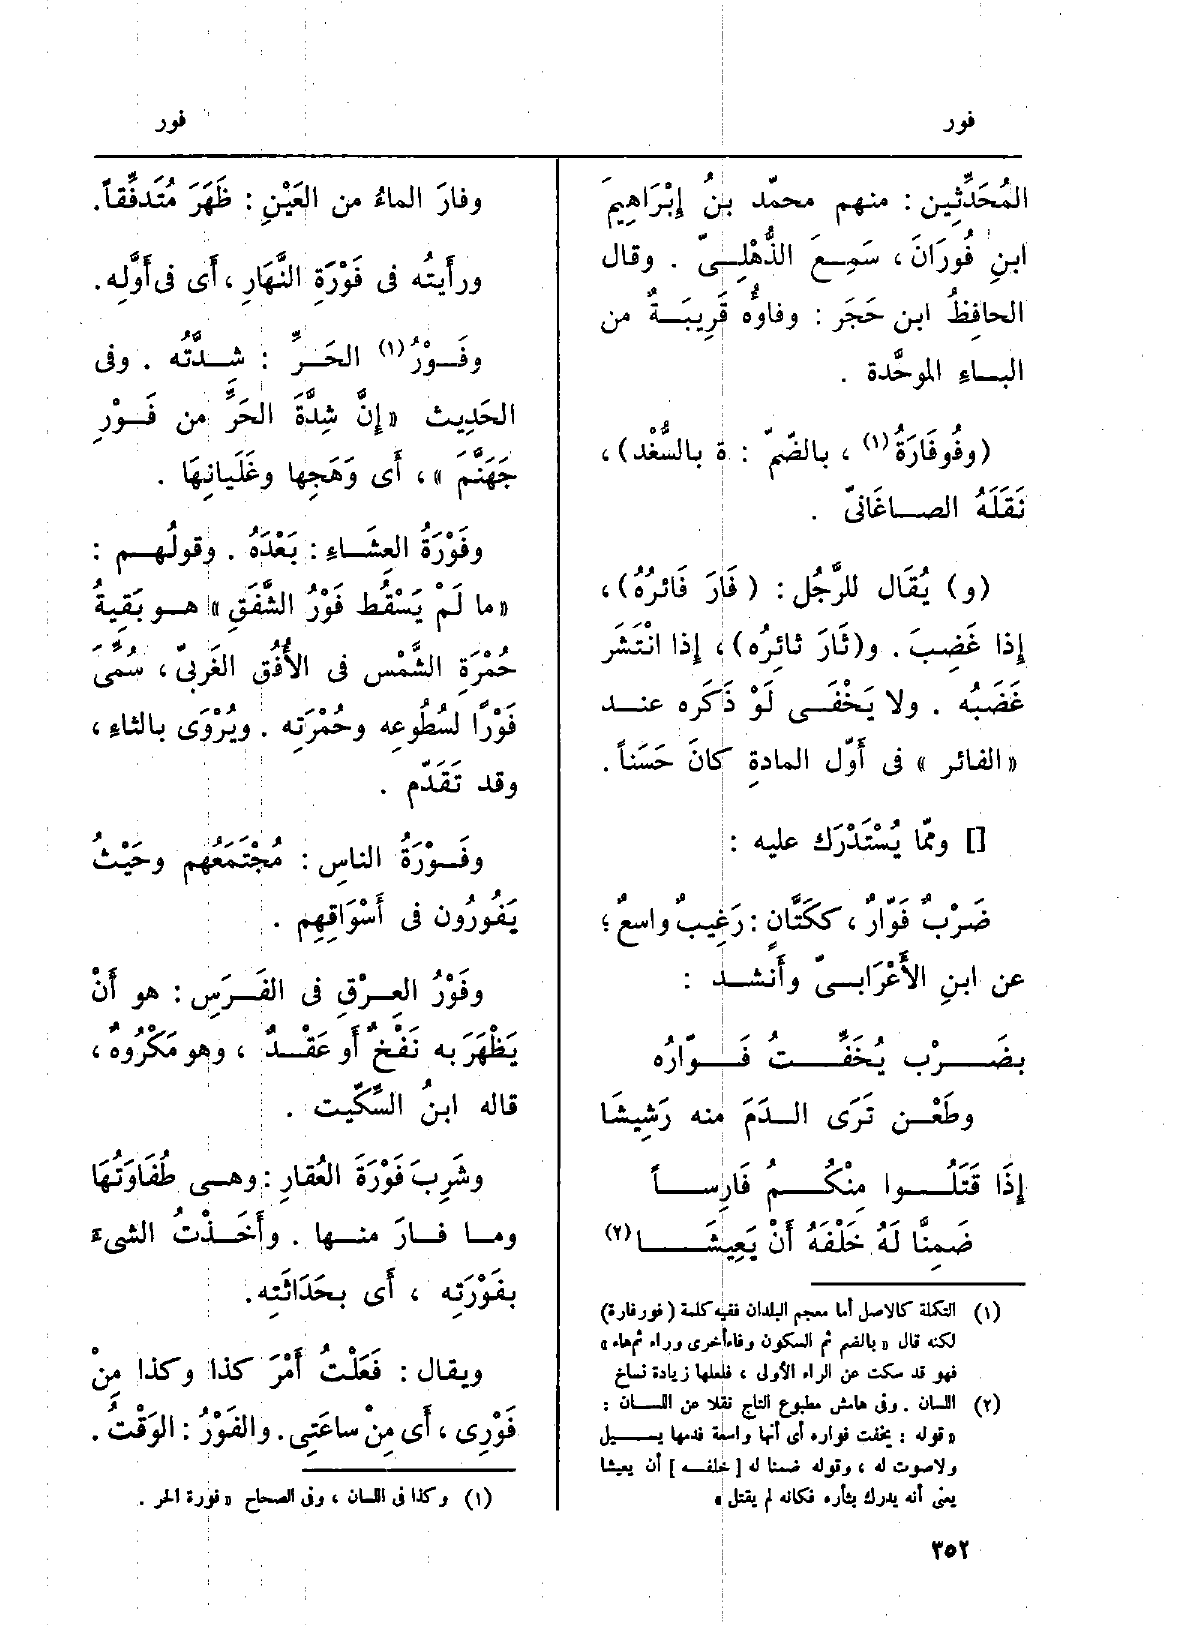 فور
فور
المُحَدِّثِين : منهم محمّد بنُ إِبْرَاهِيمَ
ابنِ فُورَانَ ، سَمِعَ الذُّهْلِىّ . وقال
الحافظُ ابن حَجَر : وفاوُّه قَرِيبَةٌ من
الباءِ الموحَّدة .
(وفُوفَارَةُ(١) ، بالضّمّ : ة بالسُّغْد) ،
نَقَلَهُ الصاغَانىّ .
(و) يُقَال للرَّجُل : (فَارَ فَائرُهُ) ،
إِذا غَضِبَ . و(ثَارَ ثائِرُه) ، إِذا انْتَشَر
غَضَبُه . ولا يَخْفَى لَوْ ذَكَره عند
« الفائر » فى أَوّل المادةِ كانَ حَسَناً .
[] وممّا يُسْتَدْرَك عليه :
ضَرْبٌ فَوّارٌ ، ككَتَّانٍ : رَغِيبٌ واسعٌ ؛
عن ابنِ الأَعْرَابىّ وأَنشد :
بضَرْب يُخَفِّتُ فَوّارُه
وطَعْن تَرَى الدَمَ منه رَشِيشَا
إِذَا قَتَلُوا مِنْكُمُ فَارِساً
ضَمِنَّا لَهُ خَلْفَهُ أَنْ يَعِيشَا(٢)
(١) التكملة كالاصل أما معجم البلدان ففيه كلمة (فورفارة)
لكنه قال « بالضم ثم السكون وفاء أخرى وراء ثم هاء »
فهو قد سكت عن الراء الأولى ، فلعلها زيادة نساخ
(٢) اللسان . وفى هامش مطبوع التاج نقلا عن اللسان :
« قوله : يخفت فواره أى أنها واسعة فدمها يسيل
ولا صوت له ، وقوله ضمنا له [خلفه] أن يعيشا
يعنى أنه يدرك بثأره فكأنه لم يقتل »
وفارَ الماءُ من العَيْنِ : ظَهَرَ مُتَدفِّقاً .
ورأَيتُه فى فَوْرَةِ النَّهَارِ ، أَى فى أَوَّلِه .
وفَوْرُ(١) الحَرِّ : شدَّتُه . وفى
الحَدِيث « إِنَّ شِدَّةَ الحَرِّ من فَوْرِ
جَهَنَّمَ » ، أَى وَهَجِها وغَلَيانِهَا .
وفَوْرَةُ العِشَاءِ : بَعْدَهُ . وقولُهم :
« ما لَمْ يَسْقُط فَوْرُ الشَّفَقِ » هو بَقِيةُ
حُمْرَةِ الشَّمْس فى الأُفُق الغَربّى ، سُمِّىَ
فَوْرًا لسُطُوعِه وحُمْرَتِه . ويُرْوَى بالثاءِ ،
وقد تَقَدّم .
وفَوْرَةُ الناسِ : مُجْتَمَعُهم وحَيْثُ
يَفُورُون فى أَسْوَاقِهِم .
وفَوْرُ العِرْقِ فى الفَرَسِ : هو أَنْ
يَظْهَرَ به نَفْخٌ أَو عَقْدٌ ، وهو مَكْرُوهٌ ،
قاله ابنُ السِّكِّيت .
وشَرِبَ فَوْرَةَ العُقارِ : وهى طُفَاوَتُهَا
وما فارَ منها . وأَخَذْتُ الشىءَ
بفَوْرَتِه ، أَى بحَدَاثَتِه .
ويقال : فَعَلْتُ أَمْرَ كذا وكذا مِنْ
فَوْرِى ، أَى مِنْ ساعَتِى . والفَوْرُ : الوَقْتُ .
(١) وكذا فى اللسان ، وفى الصحاح « فورة الحر .
٣٥٢